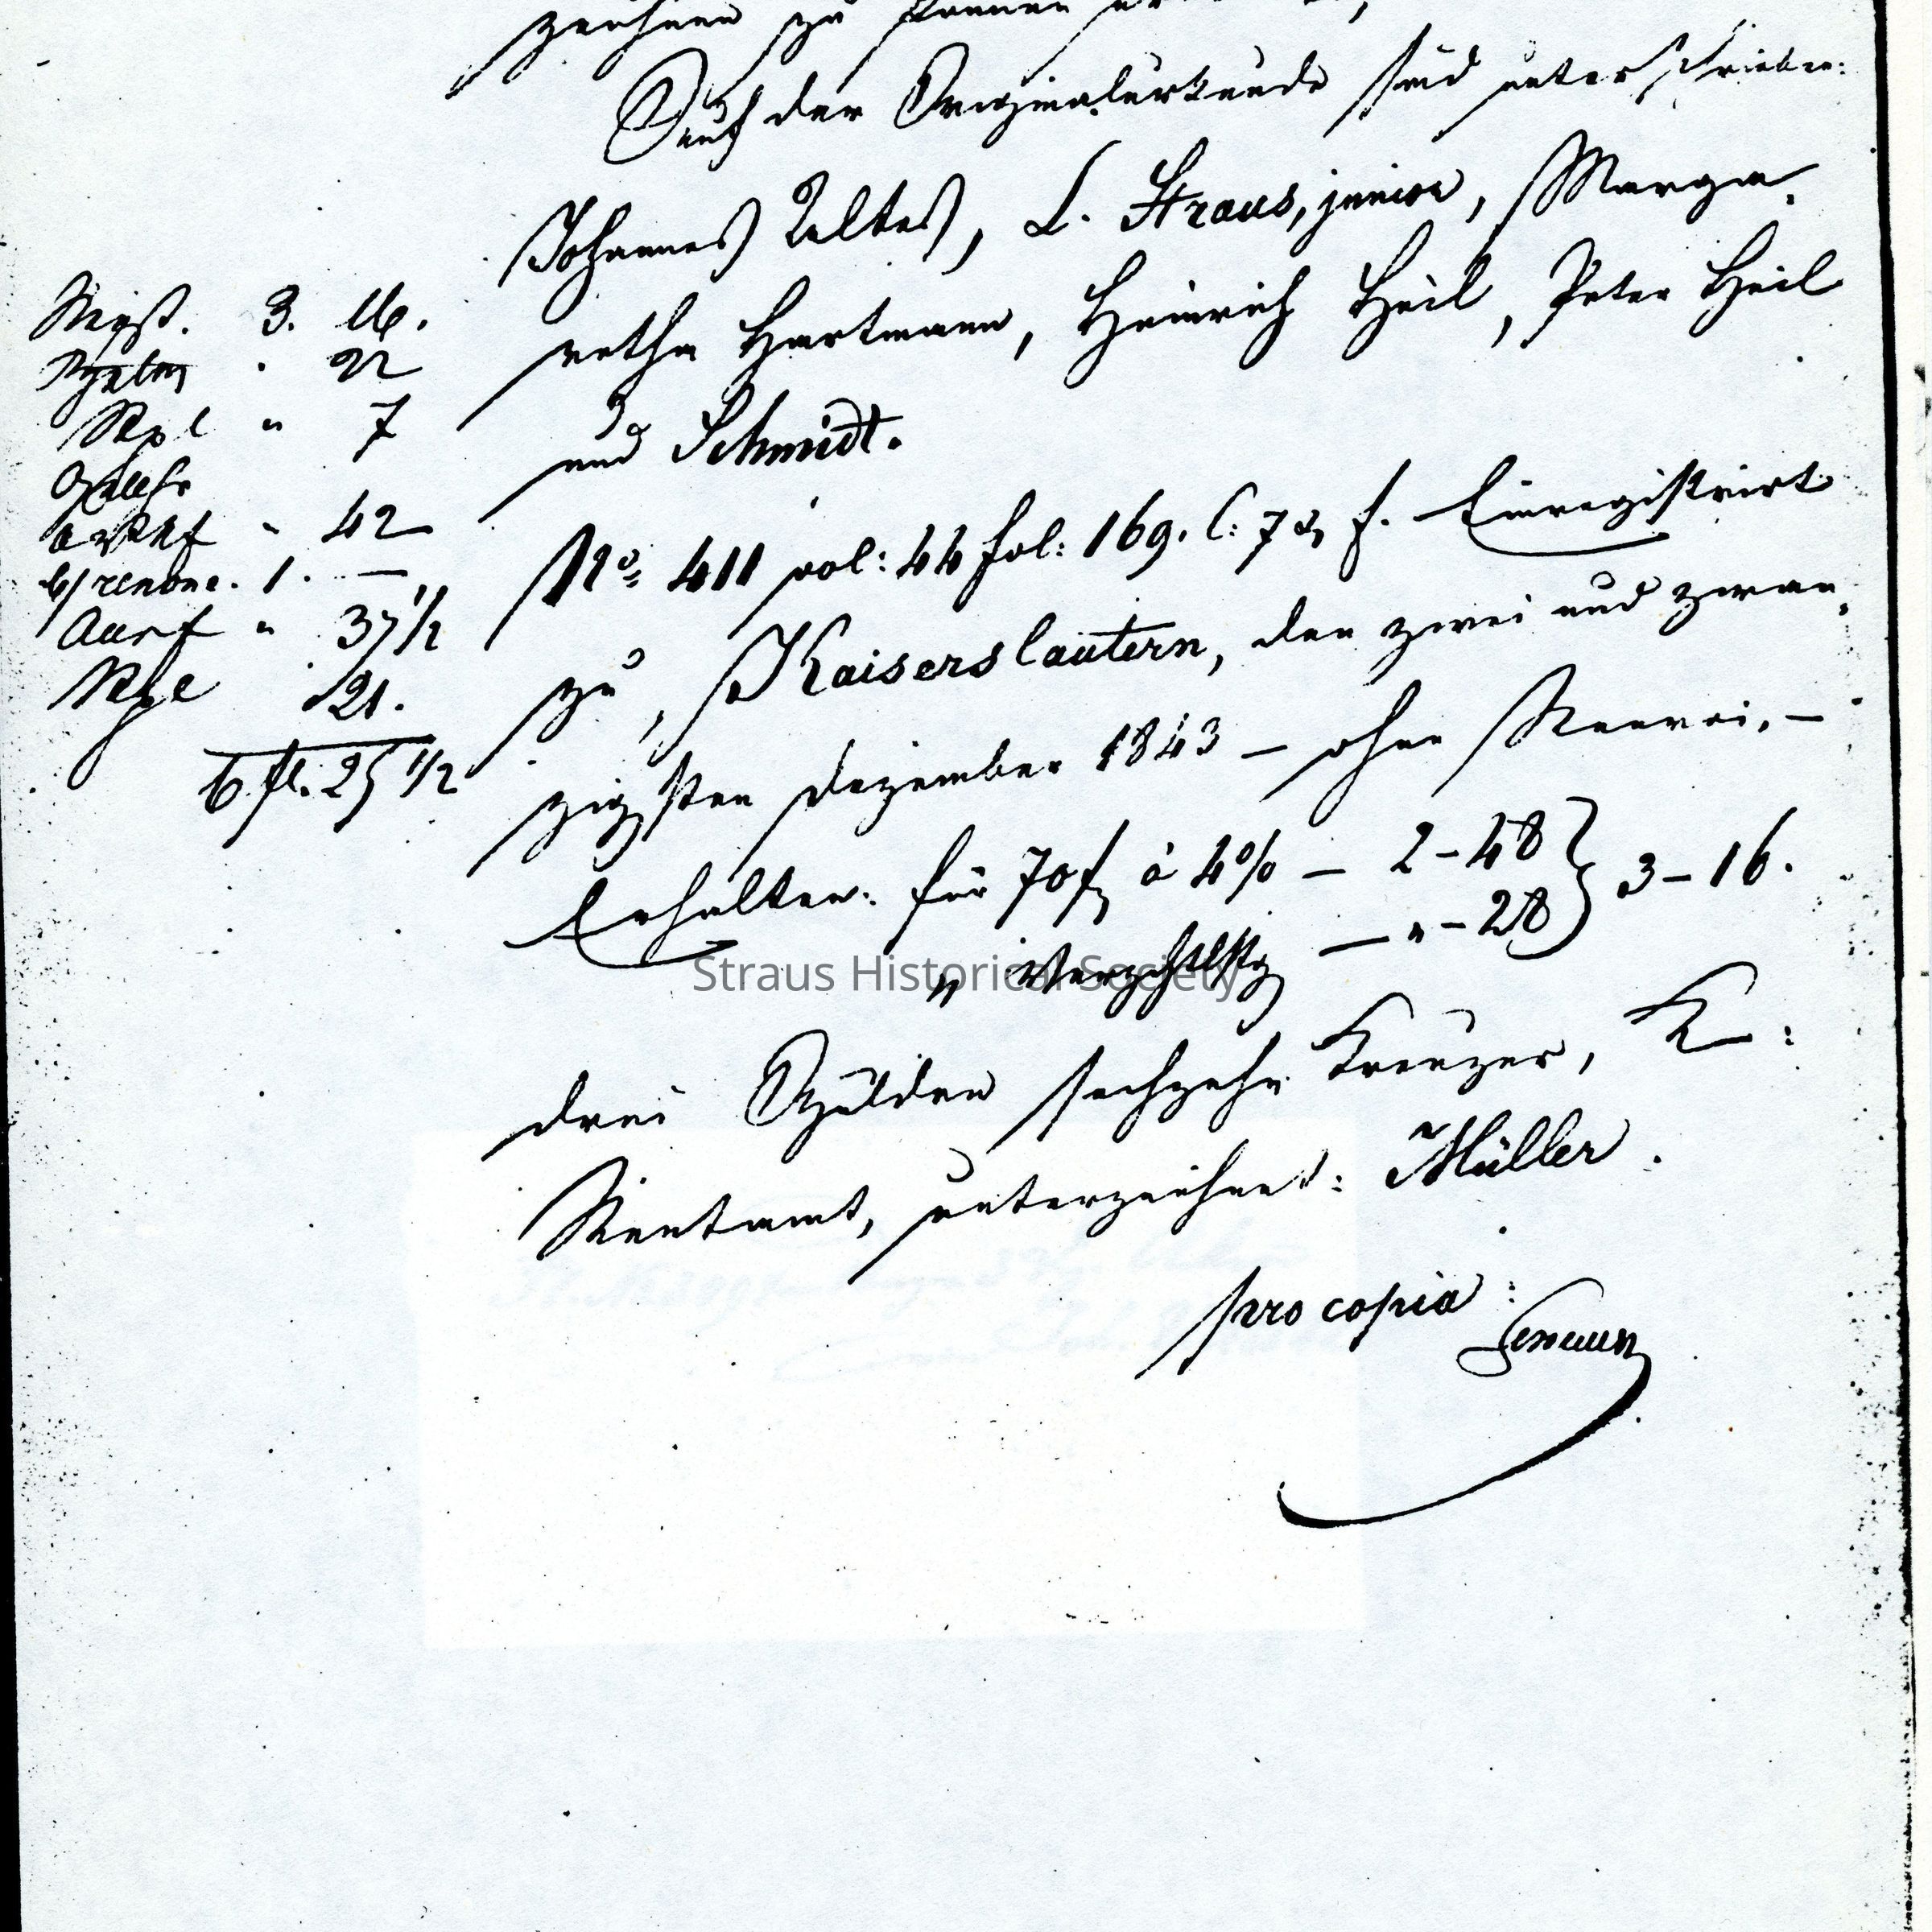 zeichnen zu können
Auf der Originalurkunde sind unterschrieben:
Johannes Ultes, L. Straus, junior, Marga-
retha Hartmann, Heinrich Heil, Peter Heil
und Schmidt.
No 411 vol: 44 fol: 169. C: 7 & f. Einregistrirt
zu Kaiserslautern, den zwei und zwan-
zigsten Dezember 1843 – ohne Renvoi. –
Erhalten: für 70 f à 4% – 2-48 } 3-16.
" Verzchtlstg – " - 28
drei Gulden sechzehn Kreuzer, K :
Rentamt, unterzeichnet: Müller.
pro copia :
Regst. 3. 16.
" 22
Stpl " 7
" 42
renonc. 1. –
Ausf " 37 1/2
21.
6 fl. 25 1/2
Straus Historical Society